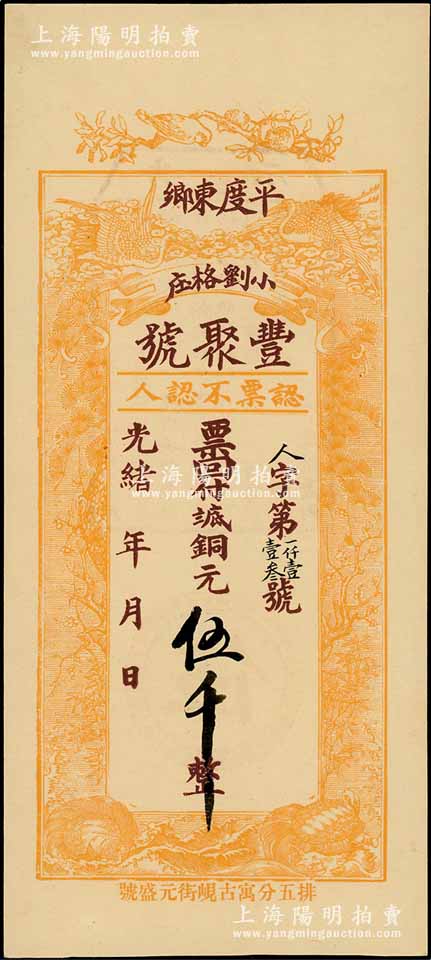 上海陽明拍賣
www.yangmingauction.com
平度東鄉
小劉格庄
豐聚號
認票不認人
人字第一仟壹壹叁號
票時䛡銅元伍千整
光緒 年 月 日
上海陽明拍賣
www.yangmingauction.com
排五分寓古峴街元盛號
上海陽明拍賣
www.yangmingauction.com